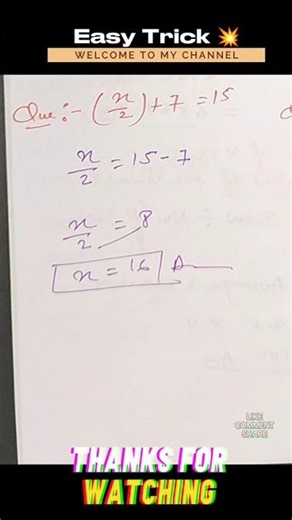 Easy Trick 💥
WELCOME TO MY CHANNEL
Que:- (x/2) + 7 = 15
x/2 = 15 - 7
x/2 = 8
x = 16 A
LIKE
COMMENT
SHARE
THANKS FOR
WATCHING